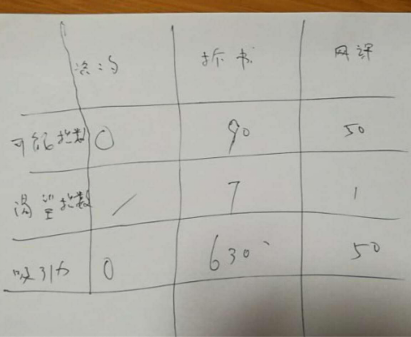 拆书 网课
可能指数 0 90 50
渴望指数 / 7 1
吸引力 0 630 50